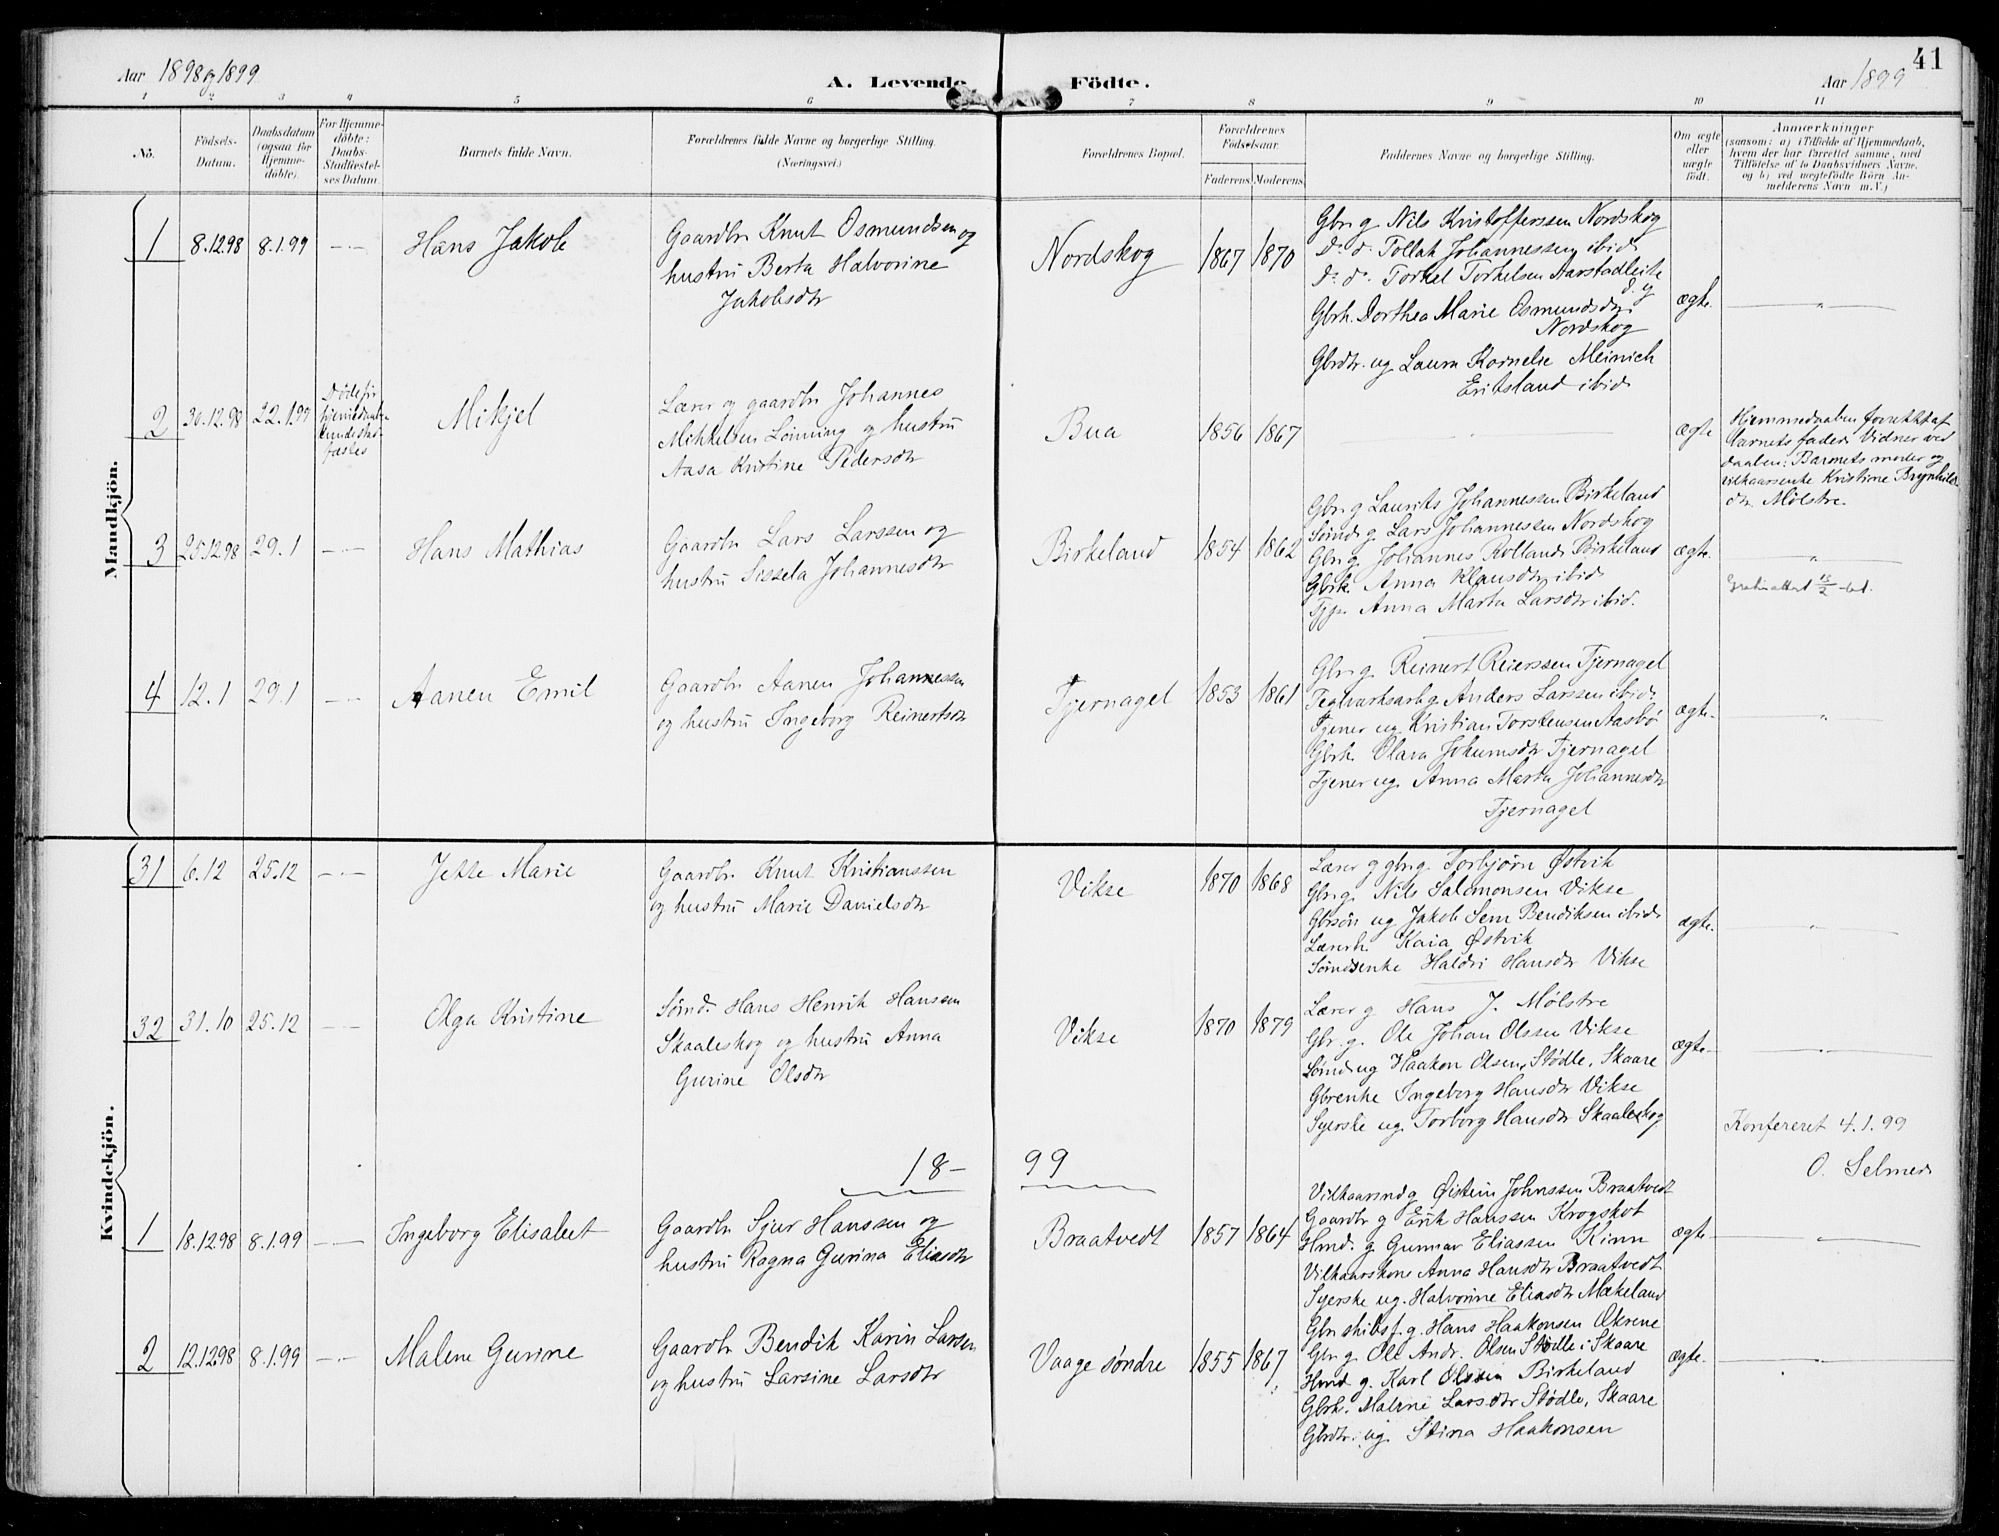 41
Aar 1898 og 1899
A. Levende Födte.
Aar 1899
1 2 3 4 5 6 7 8 9 10 11
No.
Födsels-Datum.
Daabsdatum (ogsaa for Hjemme-döbte).
For Hjemme-döbte: Daabs-Stadfæstel-ses Datum
Barnets fulde Navn.
Forældrenes fulde Navne og borgerlige Stilling.
(Næringsvei.)
Forældrenes Bopæl.
Forældrenes Födselsaar.
Faderens. Moderens.
Faddernes Navne og borgerlige Stilling.
Om ægte eller uægte födt.
Anmærkninger
(saasom: a) i Tilfælde af Hjemmedaab,
hvem der har forrettet samme, med
Tilföielse af to Daabsvidners Navne,
og b) ved uægtefödte Börn An-
melderens Navn m. V.)
Mandkjön.
1 8.12.98 8.1.99 -"- Hans Jakob
Gaardbr Knut Osmundsen og
hustru Berta Halvorine
Jakobsdtr
Nordskog 1867 1870
Gbr. g. Nils Kristofferssen Nordskog
do. do. Tollak Johannessen ibid.
do. do. Torkel Torkelsen Aarstadleite
Gbrh. Dorthea Marie Osmundsdtr.
Nordskog
Gbrdtr. ug Laura Kornelie Meinich
Eritsland ibid.
ægte. "
2 30.12.98 22.1.99
Døde før
hjemmedaaben
kunde stad-
fæstes
Mikjel
Lærer og gaardbr Johannes
Mikkelsen Lönning og hustru
Aasa Kristine Pedersdtr
Bua 1856 1867 "
ægte
Hjemmedaaben forrettet af
barnets fader. Vidner ved
daaben: Barnets moder og
vilkaarsenke Kristine Brynhilds-
dtr Mølstre.
3 25.12.98 29.1 -"- Hans Mathias
Gaardbr Lars Larssen og
hustru Sissela Johannesdtr
Birkeland 1854 1862
Gbr. g. Laurits Johannessen Birkeland
Sømd g. Lars Johannessen Nordskog
Gbr. g. Johannes Rolland Birkeland
Gbrk. Anna Klausdtr ibid.
Tjp. Anna Marta Larsdtr ibid.
ægte. "
4 12.1 29.1 -"- Aanen Emil
Gaardbr Aanen Johannessen
og hustru Ingeborg Reinertsdtr
Tjernagel 1853 1861
Gbr. g. Reinert Reierssen Tjernagel
Teglverksarb g. Anders Larssen ibid.
Tjener ug Kristian Torstensen Aasbö
Gbrk. Olava Johansdtr Tjernagel
Tjener ug. Anna Marta Johannesdtr
Tjernagel
ægte. "
Kvindekjön.
31 6.12 25.12 -"- Jette Marie
Gaardbr Knut Kristianssen
og hustru Marie Danielsdtr
Vikse 1870 1868
Lærer og gbr. g. Torbjørn Østvik
Gbr. g. Nils Salomonsen Vikse
Gbrsön ug Jakob Sem Bendiksen ibid.
Lærerh. Kaia Østvik
Sømdsenke Haldri Hansdtr Vikse
ægte. "
32 31.10 25.12 -"- Olga Kristine
Sømd. Hans Henrik Hansen
Skaaleskog og hustru Anna
Gurine Olsdtr
Vikse 1870 1879
Lærer g Hans J. Mölstre
Gbr. g. Ole Johan Olssen Vikse
Sømd ug Haakon Olsen, Stødle, Skaare
Gbrenke Ingeborg Hansdtr Vikse
Syerske ug. Torborg Hansdtr Skaaleskog
ægte- "
Konfereret 4.1.99
O. Selmer
18- 99
1 18.12.98 8.1.99 -"- Ingeborg Elisabet
Gaardbr Sjur Hanssen og
hustru Ragna Gurina Eliasdtr
Braatvedt 1857 1864
Vilkaarsmd g. Øistein Johnssen Braatvedt
Gaardbr g Erik Hanssen Krogskot
Hmd. g Gunnar Eliassen Kinn
Vilkaarskone Anna Hansdtr Braatvedt
Syerske ug. Halvorine Eliasdtr Mækeland
ægte- "
2 12.12.98 8.1.99 -"- Malene Gurine
Gaardbr Bendik Karin Larsen
og hustru Larsine Larsdtr
Vaage söndre 1855 1867
Gbr skibsf. g. Hans Haakonsen Økrene
Gbr g. Ole Andr. Olsen Stødle i Skaare
Hmd g. Karl Olssen Birkeland
Gbrk. Malene Larsdtr Stødle, Skaare
Gbrdtr. ug. Stina Haakonsen
ægte. "